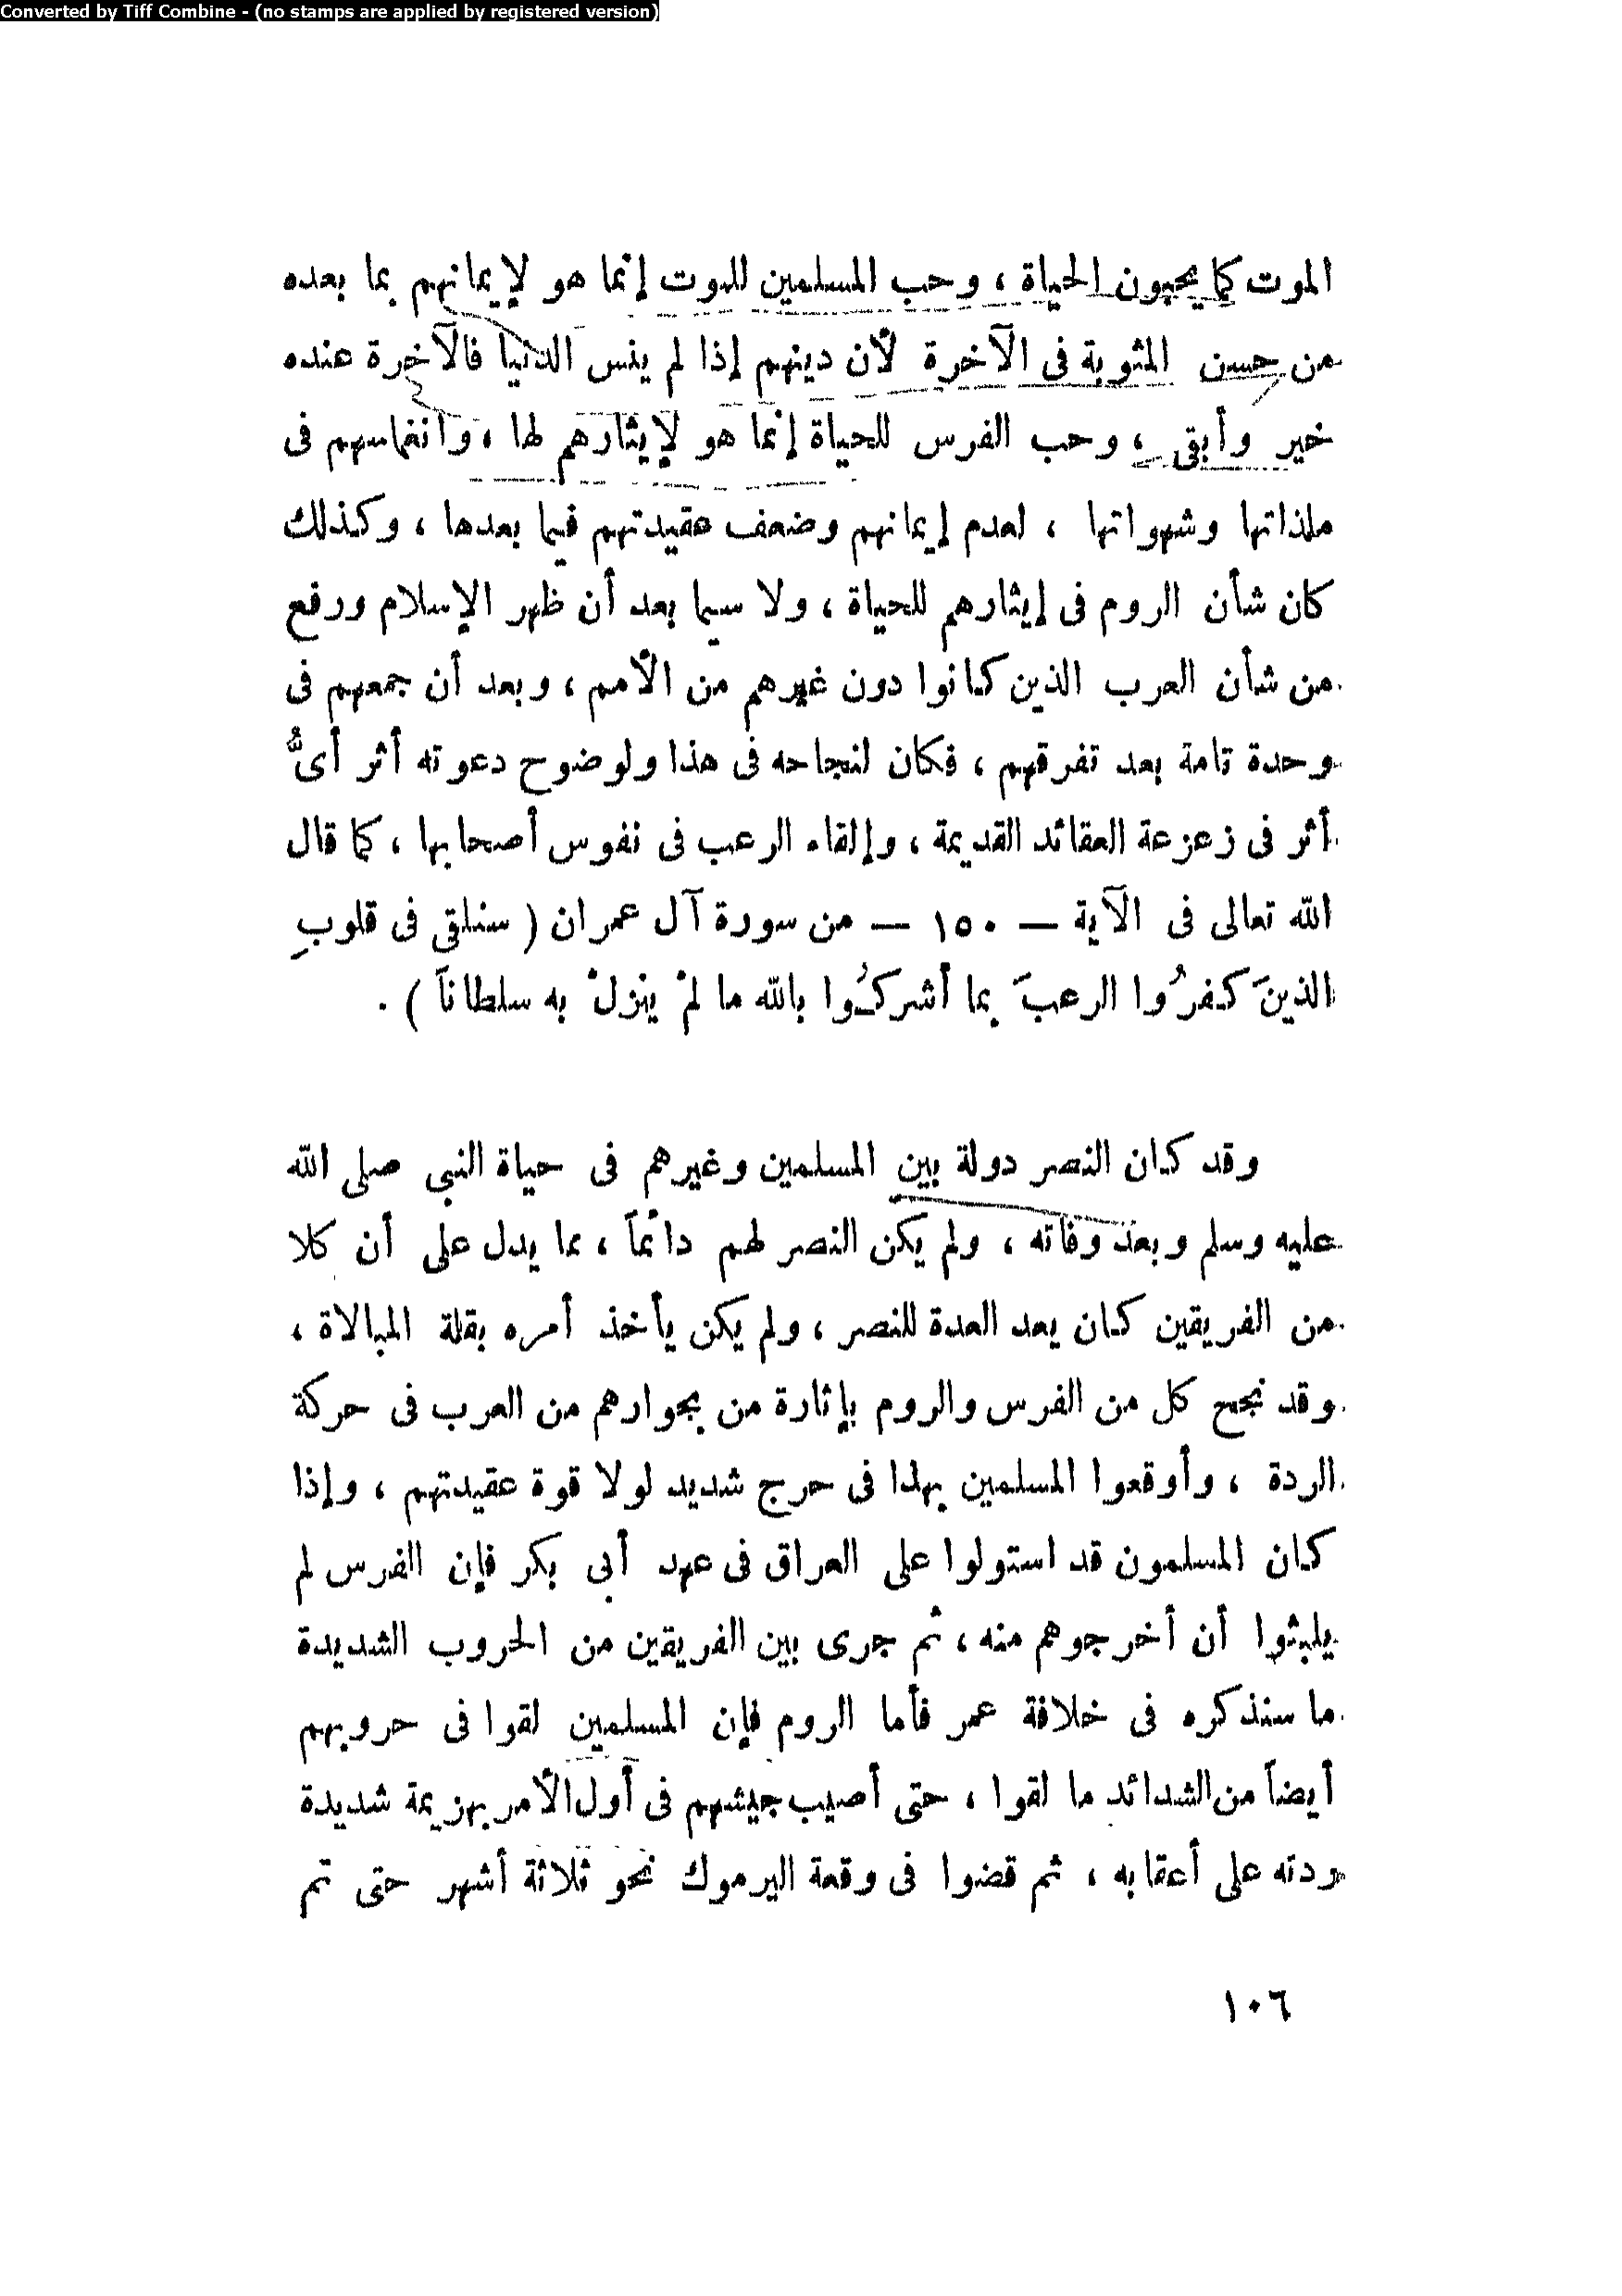 Converted by Tiff Combine - (no stamps are applied by registered version)
الموت كما يحبون الحياة ، وحب المسلمين للموت إنما هو لإيمانهم بما بعده
من حسن المثوبة فى الآخرة لأن دينهم إذا لم ينس الدنيا فالآخرة عنده
خير وأبقى ، وحب الفرس للحياة إنما هو لإيثارهم لها ، وانغماسهم فى
ملذاتها وشهواتها ، لعدم إيمانهم وضعف عقيدتهم فيما بعدها ، وكذلك
كان شأن الروم فى إيثارهم للحياة ، ولا سيما بعد أن ظهر الإسلام ورفع
من شأن العرب الذين كانوا دون غيرهم من الأمم ، وبعد أن جمعهم فى
وحدة تامة بعد تفرقهم ، فكان لنجاحه فى هذا ولوضوح دعوته أثر أىُّ
أثر فى زعزعة العقائد القديمة ، وإلقاء الرعب فى نفوس أصحابها ، كما قال
الله تعالى فى الآية — ١٥٠ — من سورة آل عمران ( سنلقى فى قلوبِ
الذينَ كفرُوا الرعبَ بما أشركُوا بالله ما لمْ ينزلْ به سلطاناً ) .
وقد كان النصر دولة بين المسلمين وغيرهم فى حياة النبى صلى الله
عليه وسلم وبعد وفاته ، ولم يكن النصر لهم دائماً ، مما يدل على أن كلا
من الفريقين كان يعد العدة للنصر ، ولم يكن يأخذ أمره بقلة المبالاة ،
وقد نجح كل من الفرس والروم بإثارة من بجوارهم من العرب فى حركة
الردة ، وأوقعوا المسلمين بهذا فى حرج شديد لولا قوة عقيدتهم ، وإذا
كان المسلمون قد استولوا على العراق فى عهد أبى بكر فإن الفرس لم
يلبثوا أن أخرجوهم منه ، ثم جرى بين الفريقين من الحروب الشديدة
ما سنذكره فى خلافة عمر فأما الروم فإن المسلمين لقوا فى حروبهم
أيضاً من الشدائد ما لقوا ، حتى أصيب جيشهم فى أول الأمر بهزيمة شديدة
ردته على أعقابه ، ثم قضوا فى وقعة اليرموك نحو ثلاثة أشهر حتى تم
١٠٦